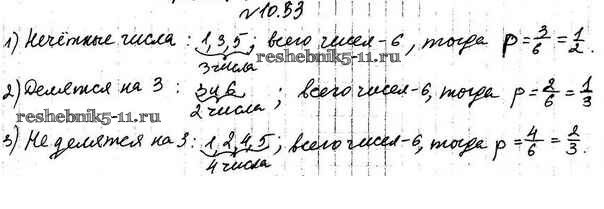 №10.93
1) Нечётные числа: 1,3,5; всего чисел-6, тогда p=3/6=1/2.
3 числа
reshebnik5-11.ru
2) Делятся на 3: 3 и 6; всего чисел-6, тогда p=2/6=1/3
2 числа
reshebnik5-11.ru
3) Не делятся на 3: 1,2,4,5; всего чисел-6, тогда p=4/6=2/3.
4 числа
reshebnik5-11.ru